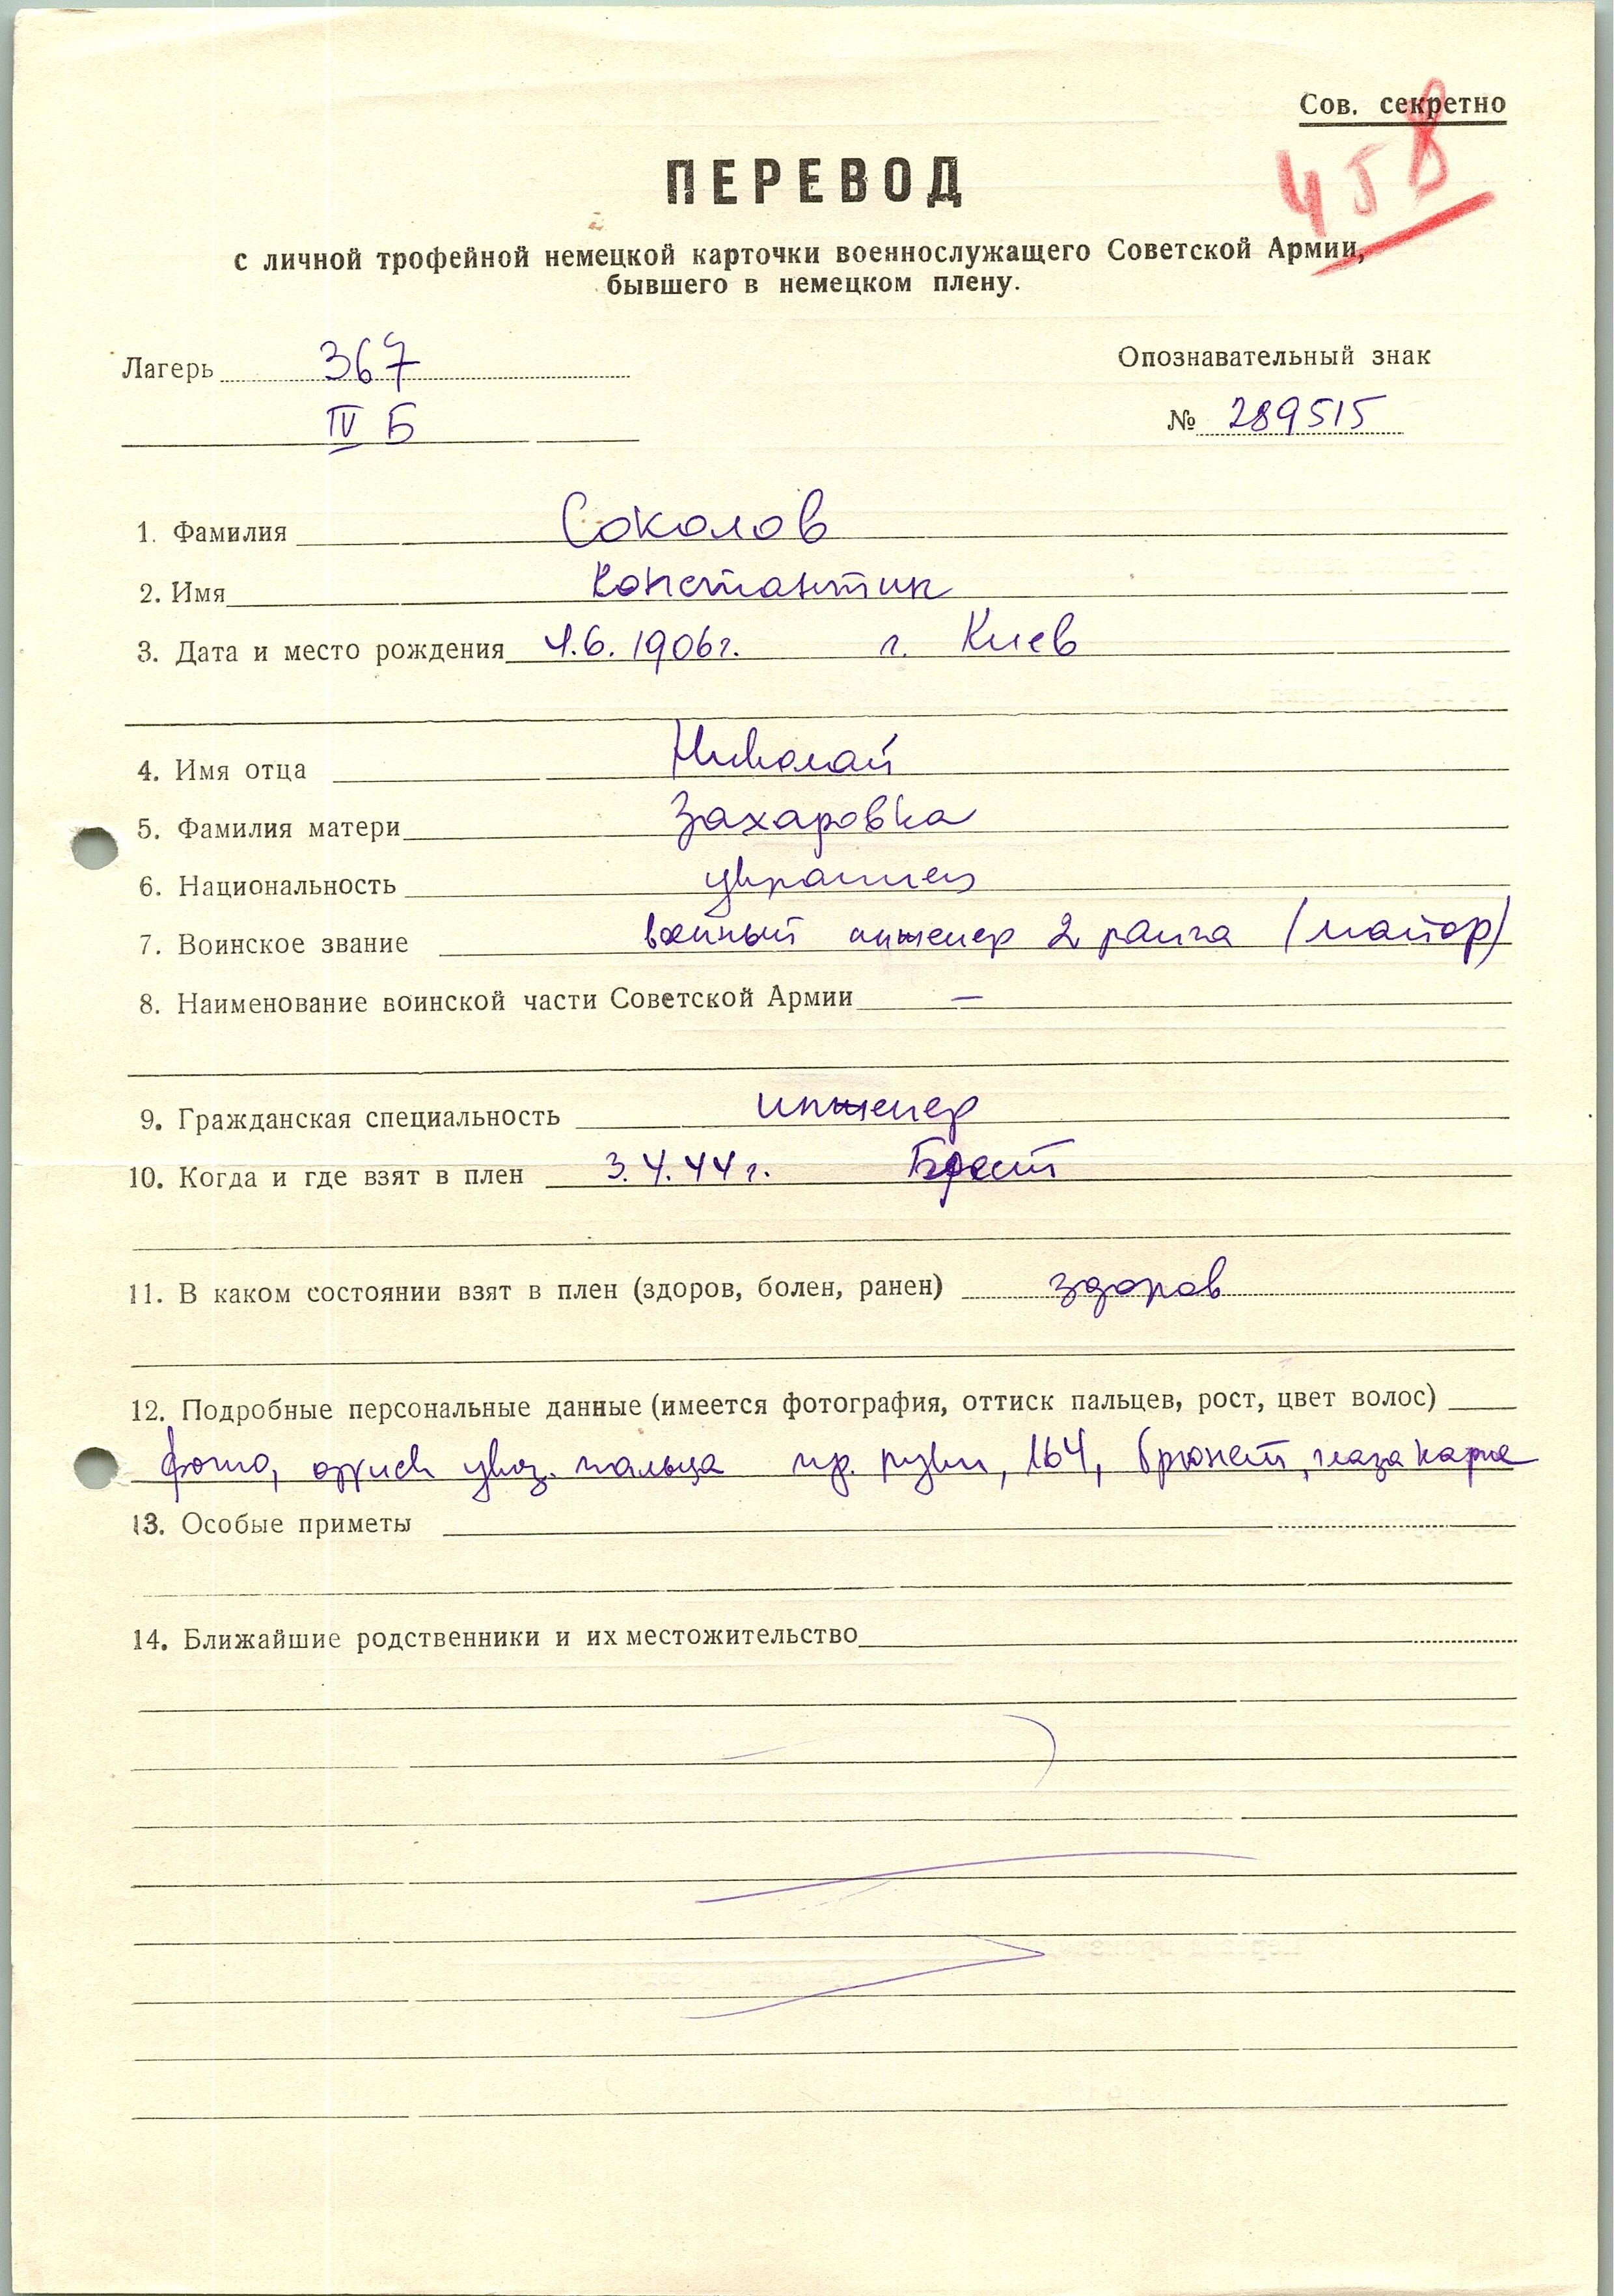 Сов. секретно
458
ПЕРЕВОД
с личной трофейной немецкой карточки военнослужащего Советской Армии,
бывшего в немецком плену.
Лагерь 367
IV Б
Опознавательный знак
№ 289515
1. Фамилия Соколов
2. Имя Константин
3. Дата и место рождения 4.6.1906г. г. Киев
4. Имя отца Николай
5. Фамилия матери Захаровка
6. Национальность украинец
7. Воинское звание военный инженер 2 ранга (майор)
8. Наименование воинской части Советской Армии —
9. Гражданская специальность инженер
10. Когда и где взят в плен 3.4.44г. Брест
11. В каком состоянии взят в плен (здоров, болен, ранен) здоров
12. Подробные персональные данные (имеется фотография, оттиск пальцев, рост, цвет волос)
фото, оттиск указ. пальца пр. руки, 164, брюнет, глаза карие
13. Особые приметы
14. Ближайшие родственники и их местожительство